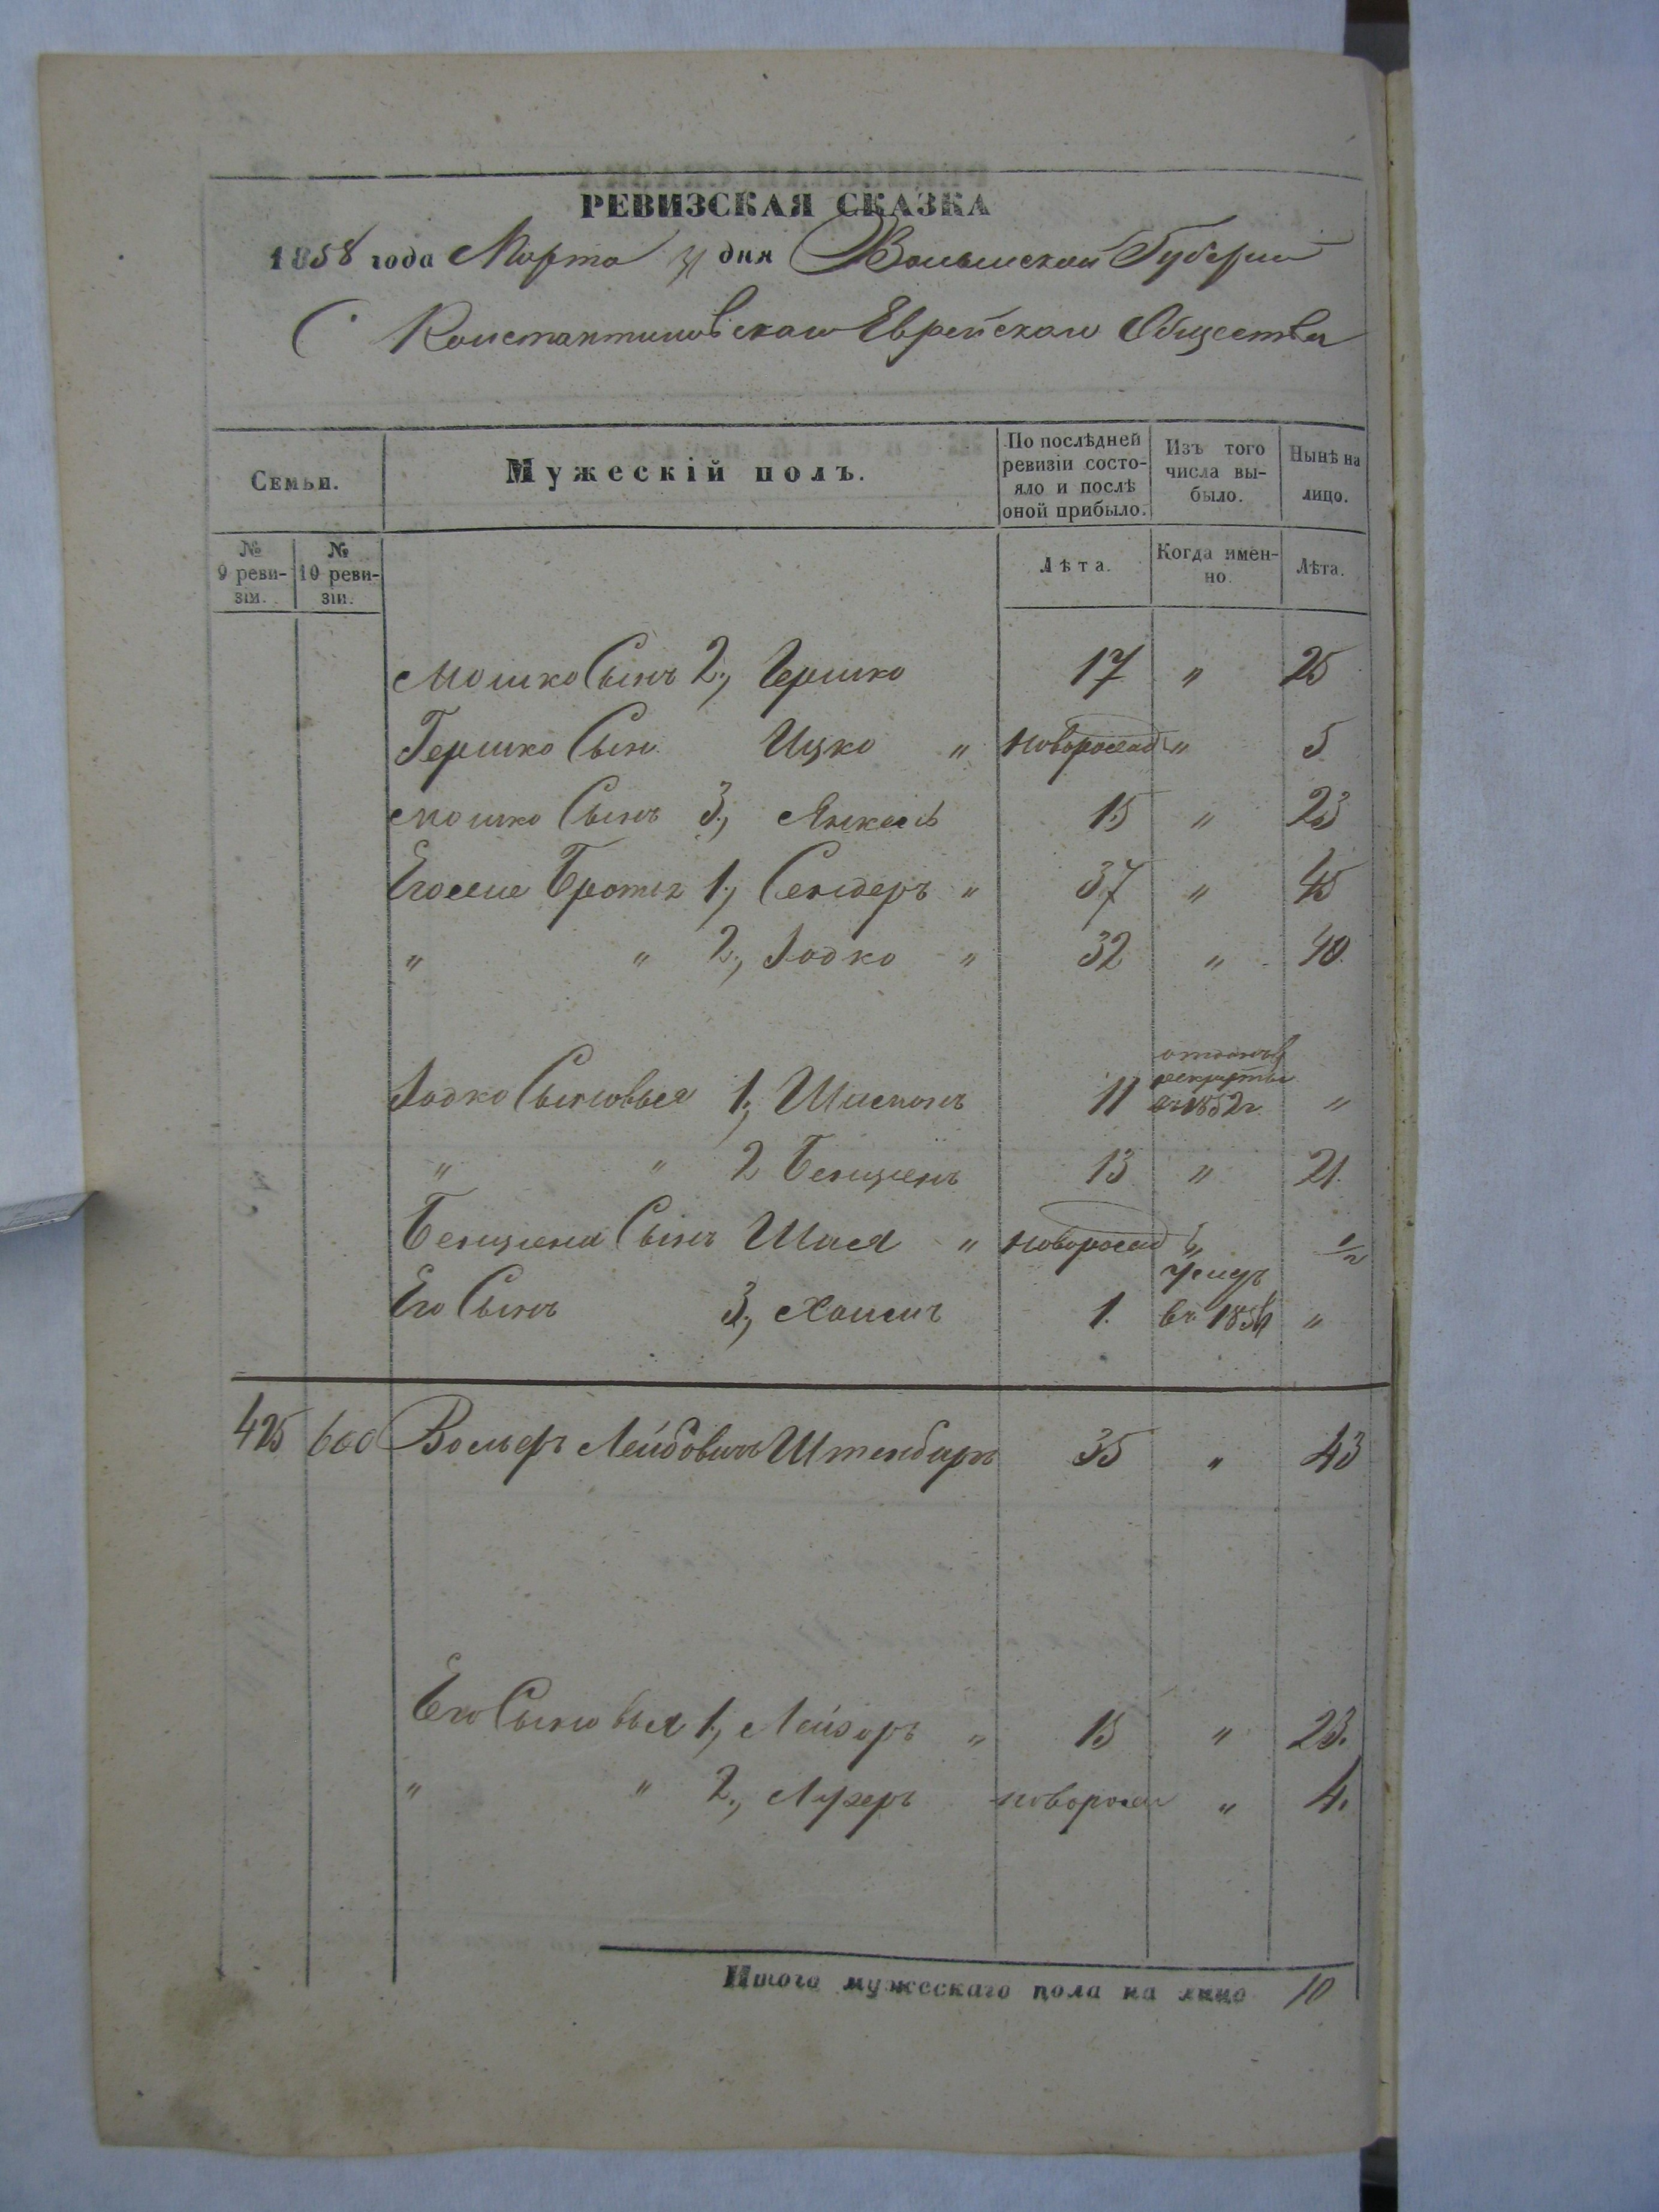 РЕВИЗСКАЯ СКАЗКА
1858 года Марта 31 дня Волынской Губернии
С Константиновскаго Еврейскаго Общества
Семьи.
Мужескій полъ.
По послѣдней ревизіи состояло и послѣ оной прибыло.
Изъ того числа выбыло.
Нынѣ на лицо.
№ 9 ревизіи.
№ 10 ревизіи.
Лѣта.
Когда именно.
Лѣта.
Мошко Сынъ 2, Гершко 17 " 25
Гершко Сын Ицко " новорожд " 5
Мошко Сынъ 3, Янкель 15 " 23
Его же Братья 1, Сендеръ " 37 " 45
" " 2, Іодко " 32 " 40
Іодко Сыновья 1, Шлемонъ 11 отданъ в рекруты въ 1852 г. "
" " 2 Бенціенъ 13 " 21
Бенціена Сынъ Шая " новорожд " 1/2
Его Сынъ 3, Хаимъ 1. умеръ въ 1856 "
425 600 Вольфъ Лейбовичъ Штенбаръ 35 " 43
Его Сыновья 1, Лейзоръ " 15 " 23.
" " 2, Лузеръ новорож " 4.
Итого мужескаго пола на лицо 10